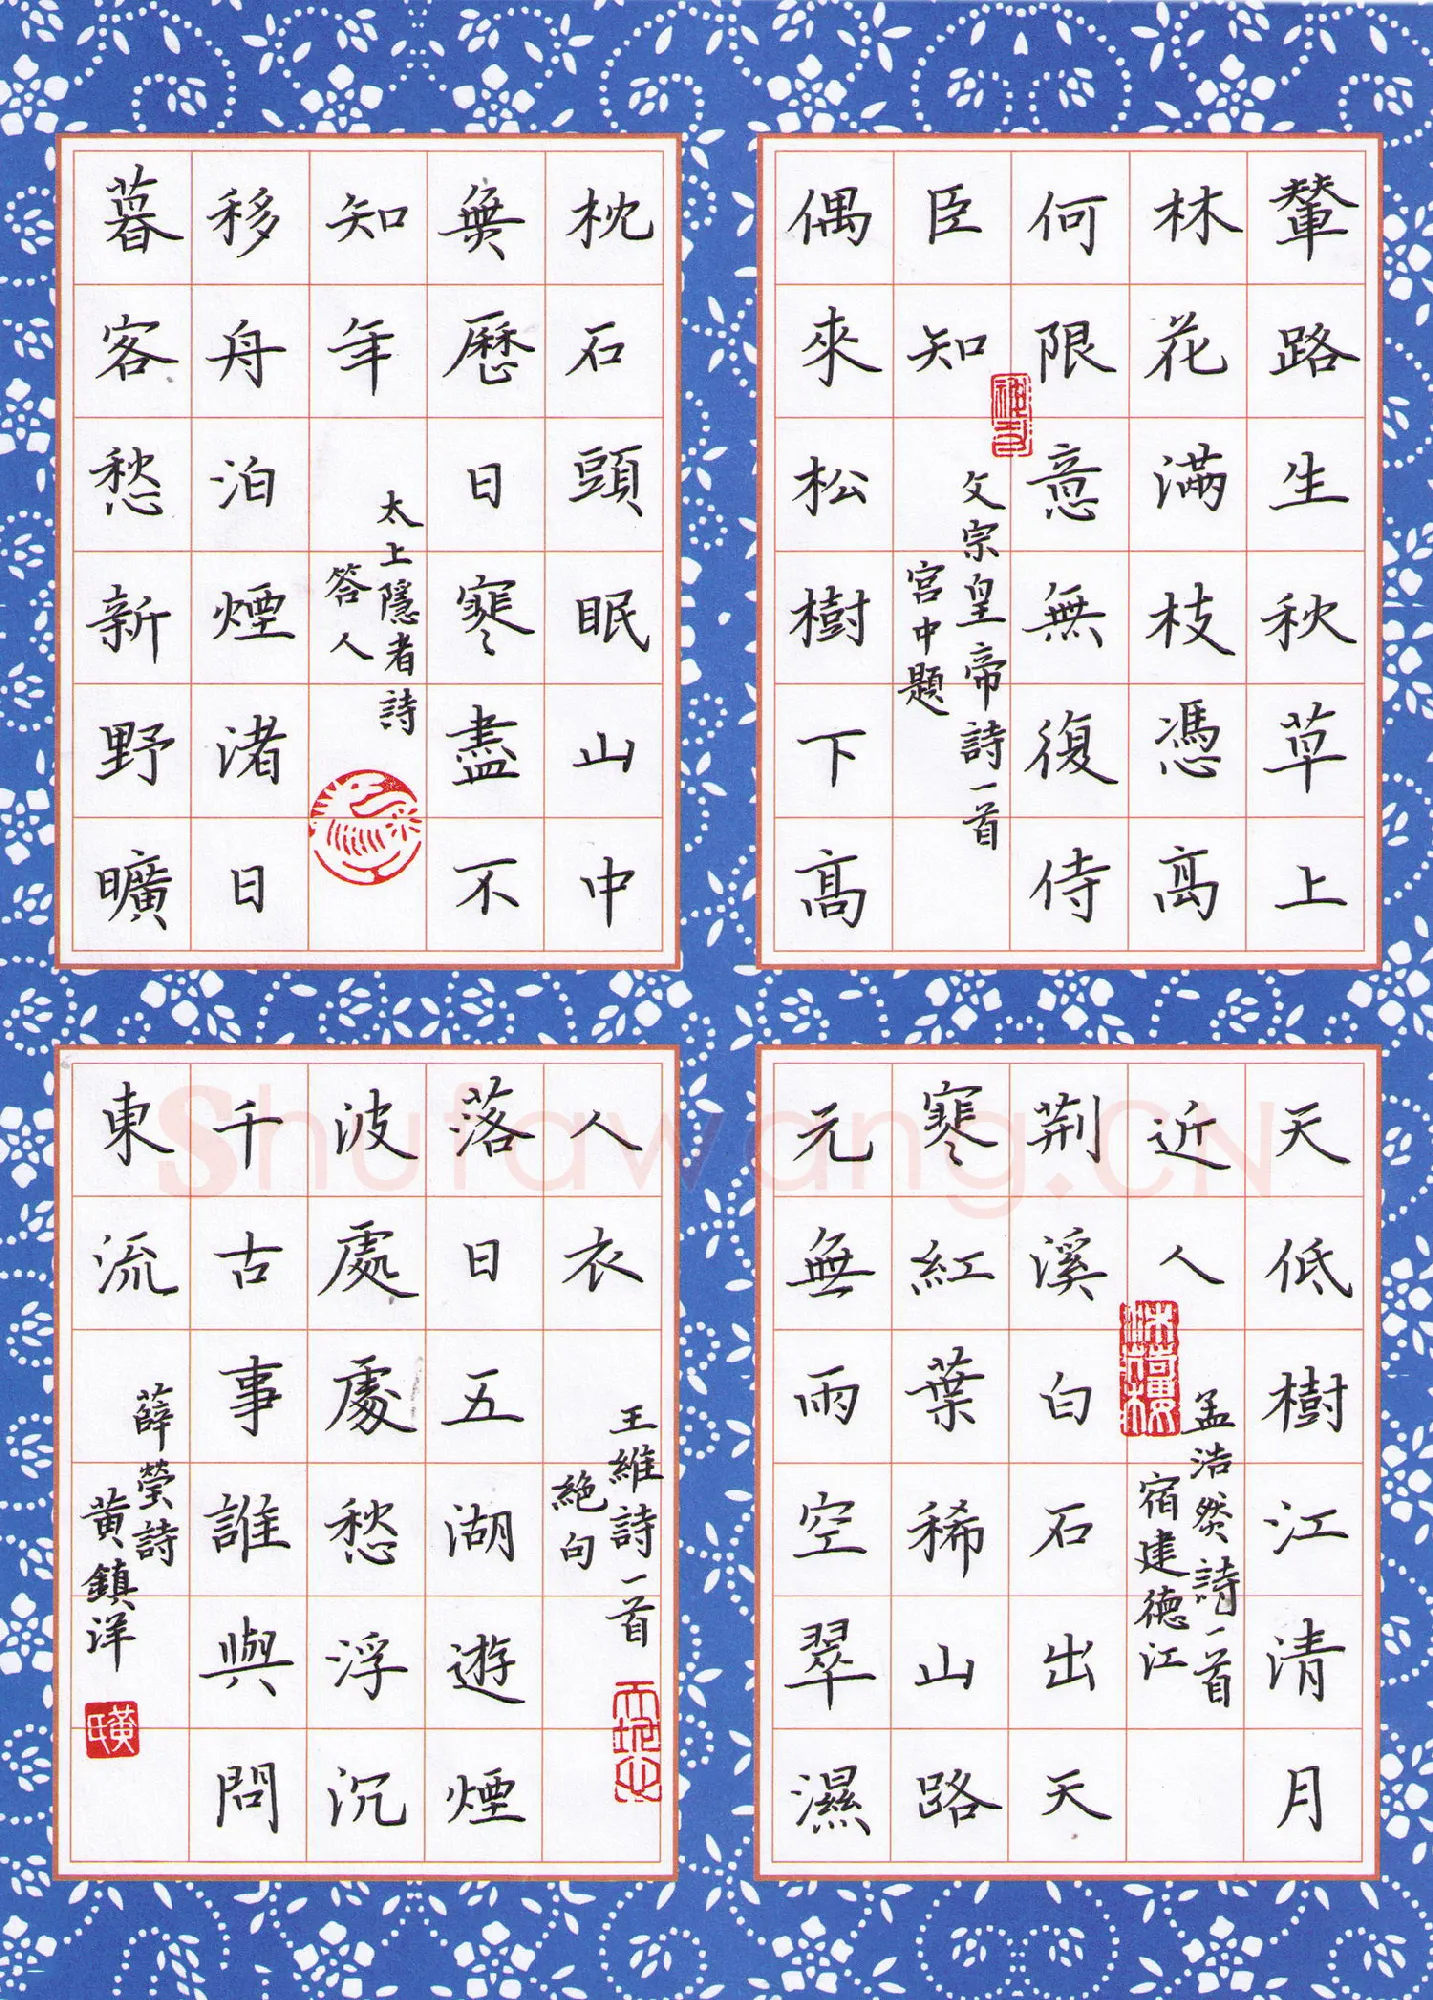 輦路生秋草上
林花滿枝憑高
何限意無復侍
臣知
文宗皇帝詩一首
宮中題
偶來松樹下高
枕石頭眠山中
無曆日寒盡不
知年
太上隱者詩
答人
移舟泊煙渚日
暮客愁新野曠
天低樹江清月
近人
孟浩然詩一首
宿建德江
荆溪白石出天
寒紅葉稀山路
元無雨空翠濕
人衣
王維詩一首
絕句
落日五湖遊煙
波處處愁浮沉
千古事誰與問
東流
薛瑩詩
黃鎮洋
黃氏
Shufawang.CN